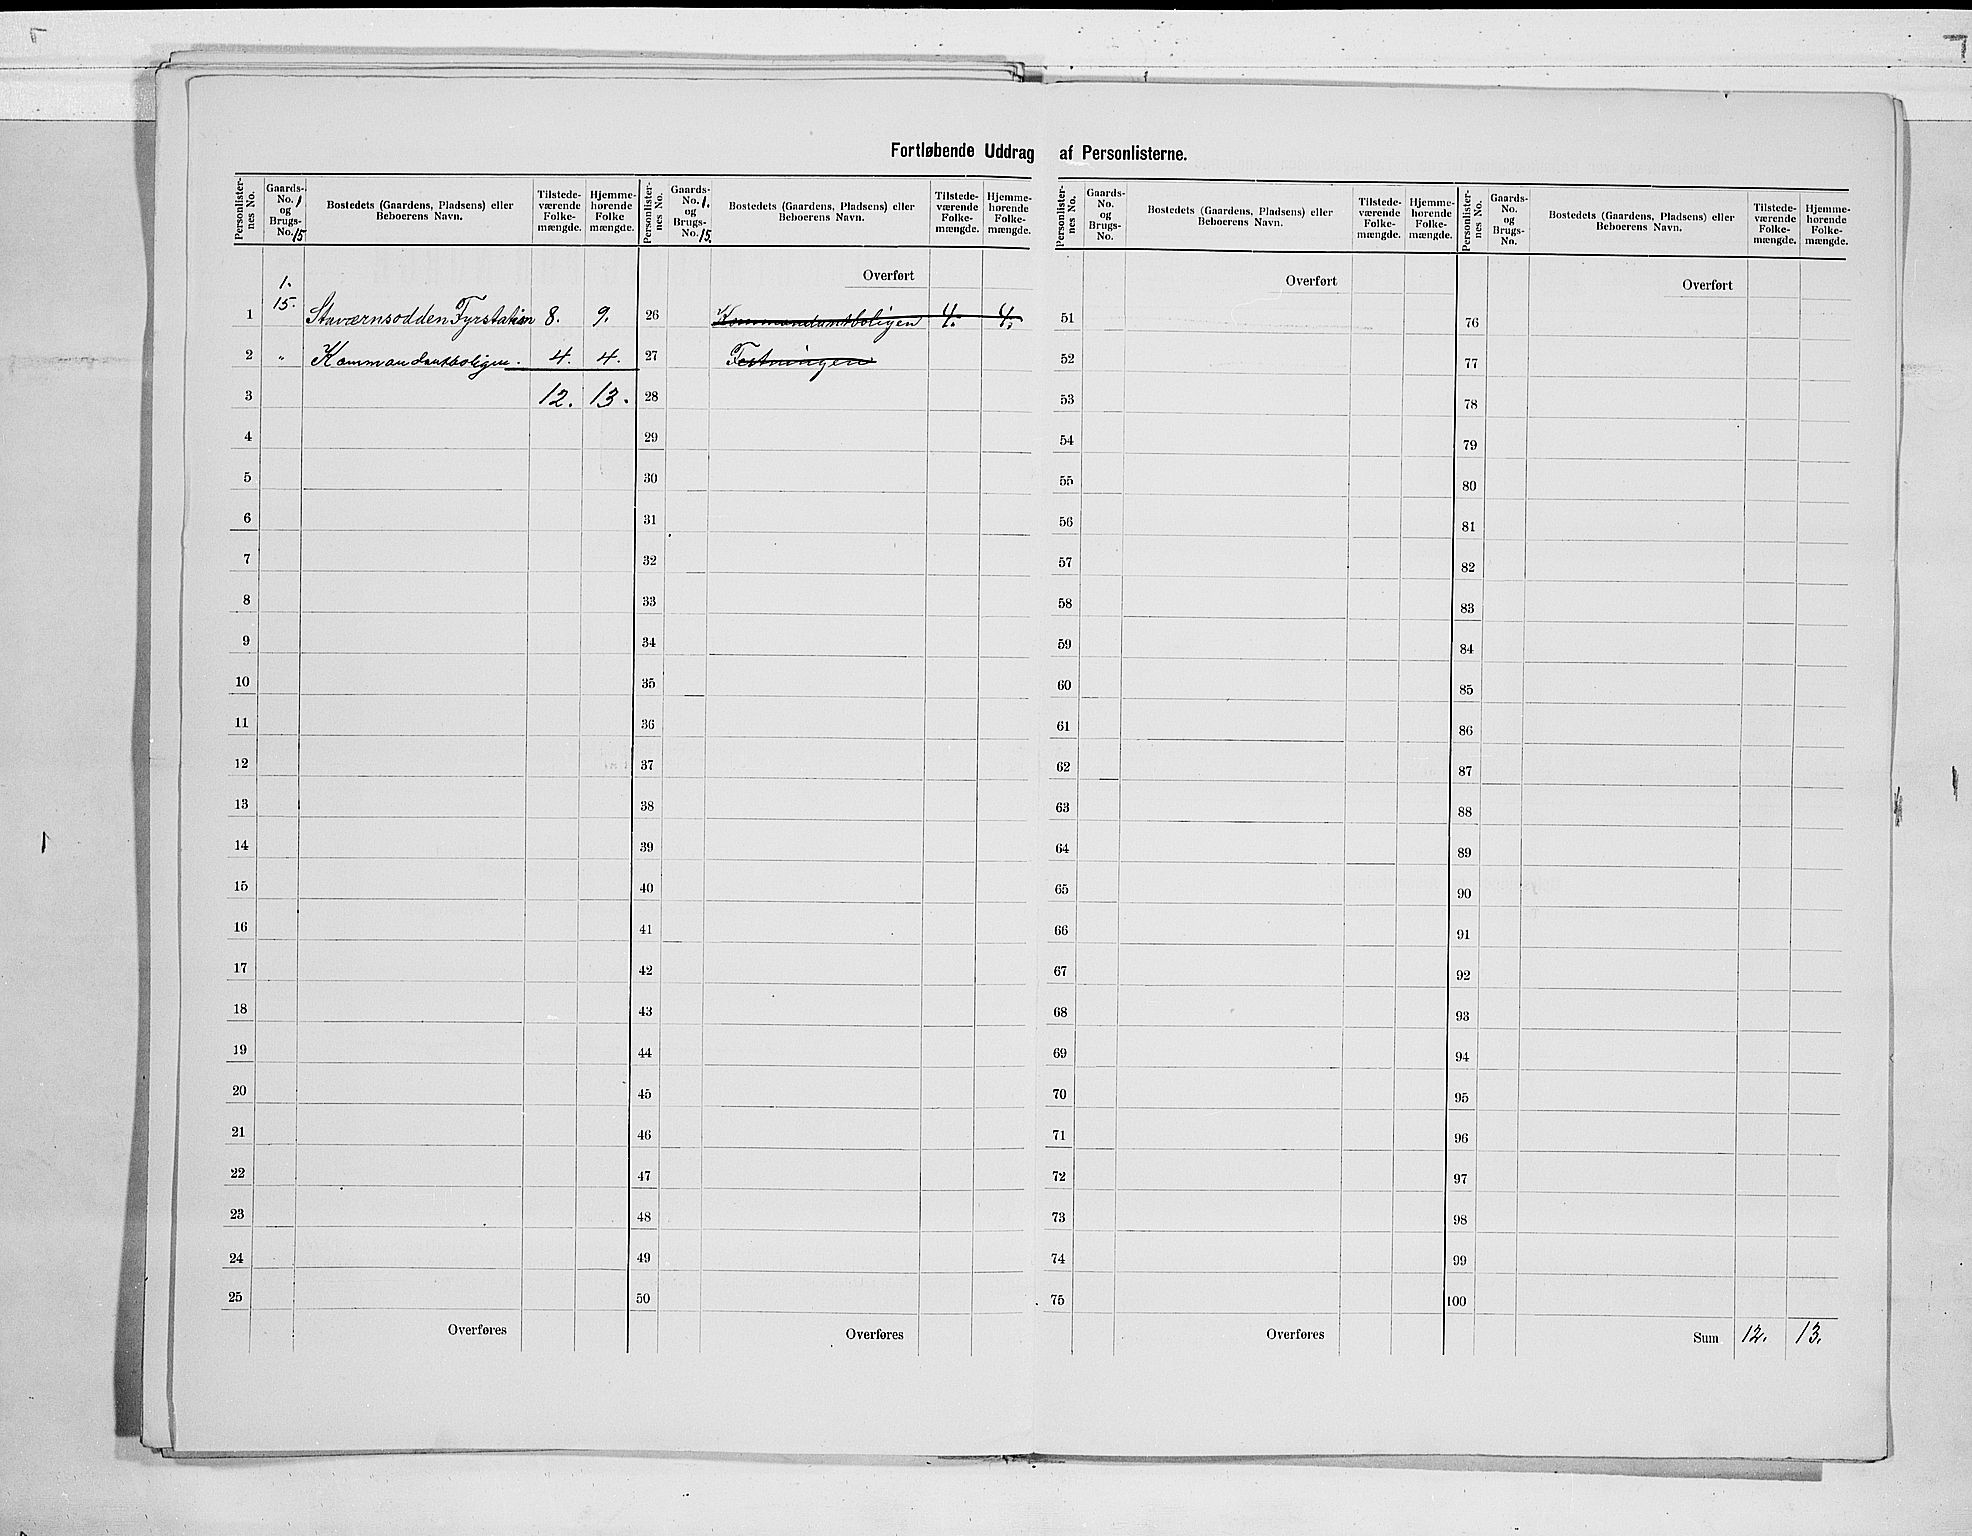 Fortløbende Uddrag af Personlisterne.
Personlister-nes No. | Gaards-No. 1 og Brugs-No. 15 | Bostedets (Gaardens, Pladsens) eller Beboerens Navn. | Tilstede-værende Folke-mængde. | Hjemme-hørende Folke mængde.
1 | 1. 15. | Staværnsodden Fyrstation | 8. | 9.
2 | „ | Kommandantboligen. | 4. | 4.
3 | | | 12. | 13.
4
5
6
7
8
9
10
11
12
13
14
15
16
17
18
19
20
21
22
23
24
25
Overføres
Personlister-nes No. | Gaards-No. 1. og Brugs-No. 15. | Bostedets (Gaardens, Pladsens) eller Beboerens Navn. | Tilstede-værende Folke-mængde. | Hjemme-hørende Folke-mængde.
Overført
26 | | Kommandantboligen | 4. | 4.
27 | | Festningen
28
29
30
31
32
33
34
35
36
37
38
39
40
41
42
43
44
45
46
47
48
49
50
Overføres
Personlister-nes No. | Gaards-No. og Brugs-No. | Bostedets (Gaardens, Pladsens) eller Beboerens Navn. | Tilstede-værende Folke-mængde. | Hjemme-hørende Folke-mængde.
Overført
51
52
53
54
55
56
57
58
59
60
61
62
63
64
65
66
67
68
69
70
71
72
73
74
75
Overføres
Personlister-nes No. | Gaards-No. og Brugs-No. | Bostedets (Gaardens, Pladsens) eller Beboerens Navn. | Tilstede-værende Folke-mængde. | Hjemme-hørende Folke-mængde.
Overført
76
77
78
79
80
81
82
83
84
85
86
87
88
89
90
91
92
93
94
95
96
97
98
99
100
Sum | 12. | 13.